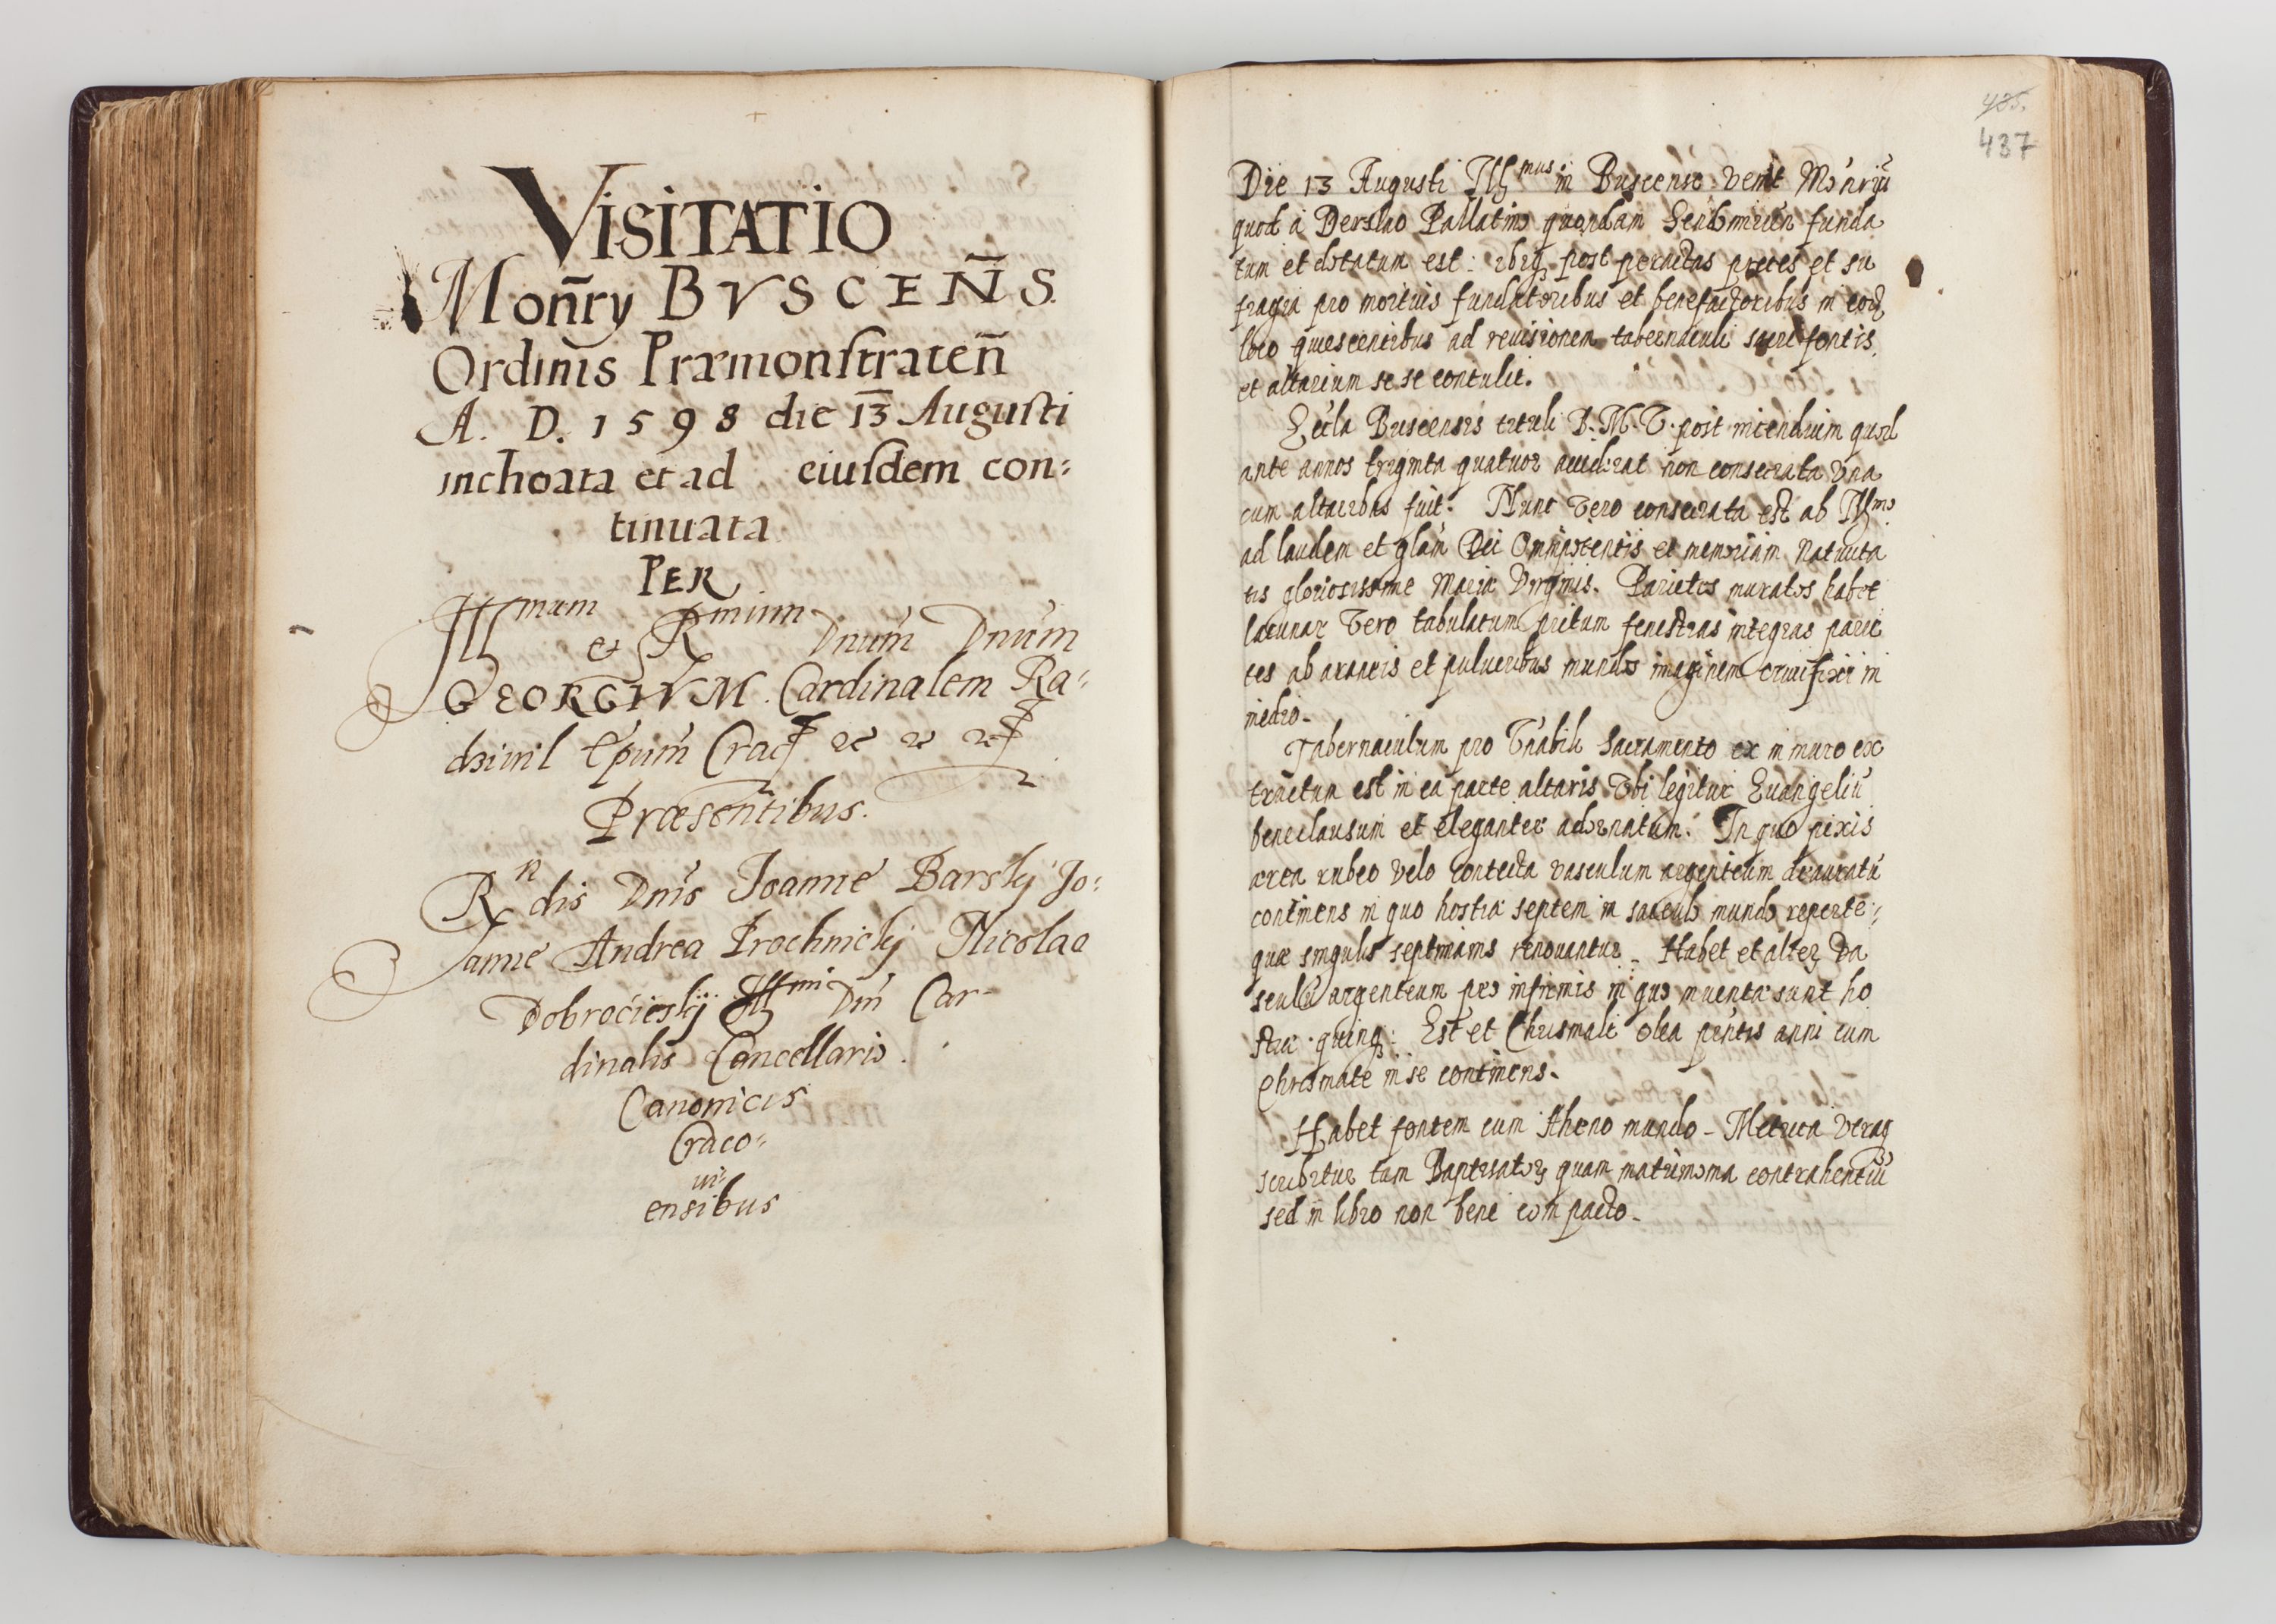 VISITATIO
Mon̄ry BVSCEÑS.
Ordinis Præmonſtrateñ
A. D. 1598 die 13 Auguſti
inchoata et ad eiuſdem con:
tinuata
PER
Illmum et Rmum Dnūm Dnūm
GEORGIVM. Cardinalem Ra:
dziuil Epum̄ Crac
Præsentibus.
Rndis Dnis Ioanne Barsky Jo:
anne Andrea Prochnicky Nicolao
Dobrocieskÿ Illmi Dni Car-
dinalis Cancellario.
Canonicis
Craco:
vi
ensibus
435.
437
Die 13 Augusti Illmus in Buscense venit Monriũ
quod a Derslao Pallatino quondam Sendomirien funda
tum et dotatum est: ibiq post peractas preces et su
fragia pro mortuis fundatoribus et benefactoribus in eod
loco quiescentibus ad reuisionem tabernaculi sacri fontis
et altarium se se contulit.
Eccla Buscensis tituli B.M.V. post incendium quod
ante annos triginta quatuor acciderat non consecrata vna
cum altaribus fuit. Nunc vero consecrata est ab Illmo
ad laudem et glam Dei Omnipotentis et memoriam natiuita
tis gloriosissime Mariæ Virginis. Parietes muratos habet
lacunar vero tabulatum pictum fenestras integras parie
tes ab araneis et pulueribus mundos imaginem crucifixi in
medio.
Tabernaculum pro Vnabili Sacramento ex in muro ex
tructum est in ea parte altaris vbi legitur Euangeliũ
bene clausum et eleganter adornatum. In quo pixis
ærea rubeo velo contecta vasculum argenteum deauratũ
continens in quo hostiæ septem in sacculo mundo reperte:
quæ singulis septimanis renouantur. Habet et alter va
sculũ argenteum pro infirmis in quo inuentæ sunt ho
stiæ quinq: Est et Chrismale olea pñtis anni cum
Chrismate in se continens.
Habet fontem cum Aheno mundo - Metrica veraq
scribitur tam Baptisator quam matrimonia contrahentiũ
sed in libro non bene compacto.